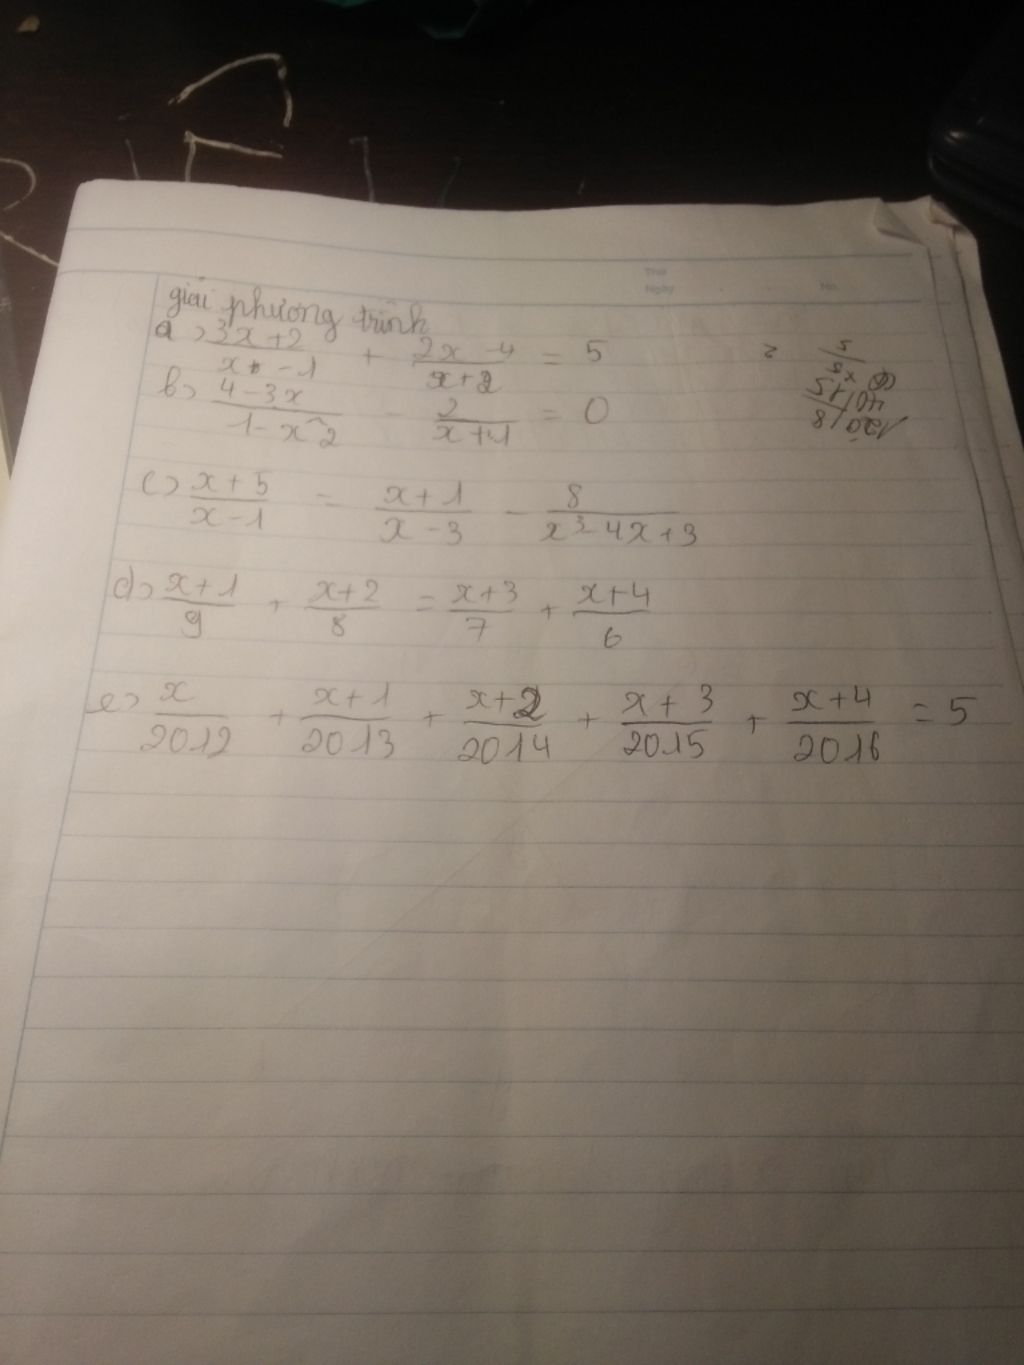 Thứ
Ngày No.
giải phương trình
a) 3x+2 / x-1 + 2x-4 / x+2 = 5
b) 4-3x / 1-x^2 - 2 / x+1 = 0
c) x+5 / x-1 = x+1 / x-3 - 8 / x³-4x+3
d) x+1 / 9 + x+2 / 8 = x+3 / 7 + x+4 / 6
e) x / 2012 + x+1 / 2013 + x+2 / 2014 + x+3 / 2015 + x+4 / 2016 = 5
120/8
40/15